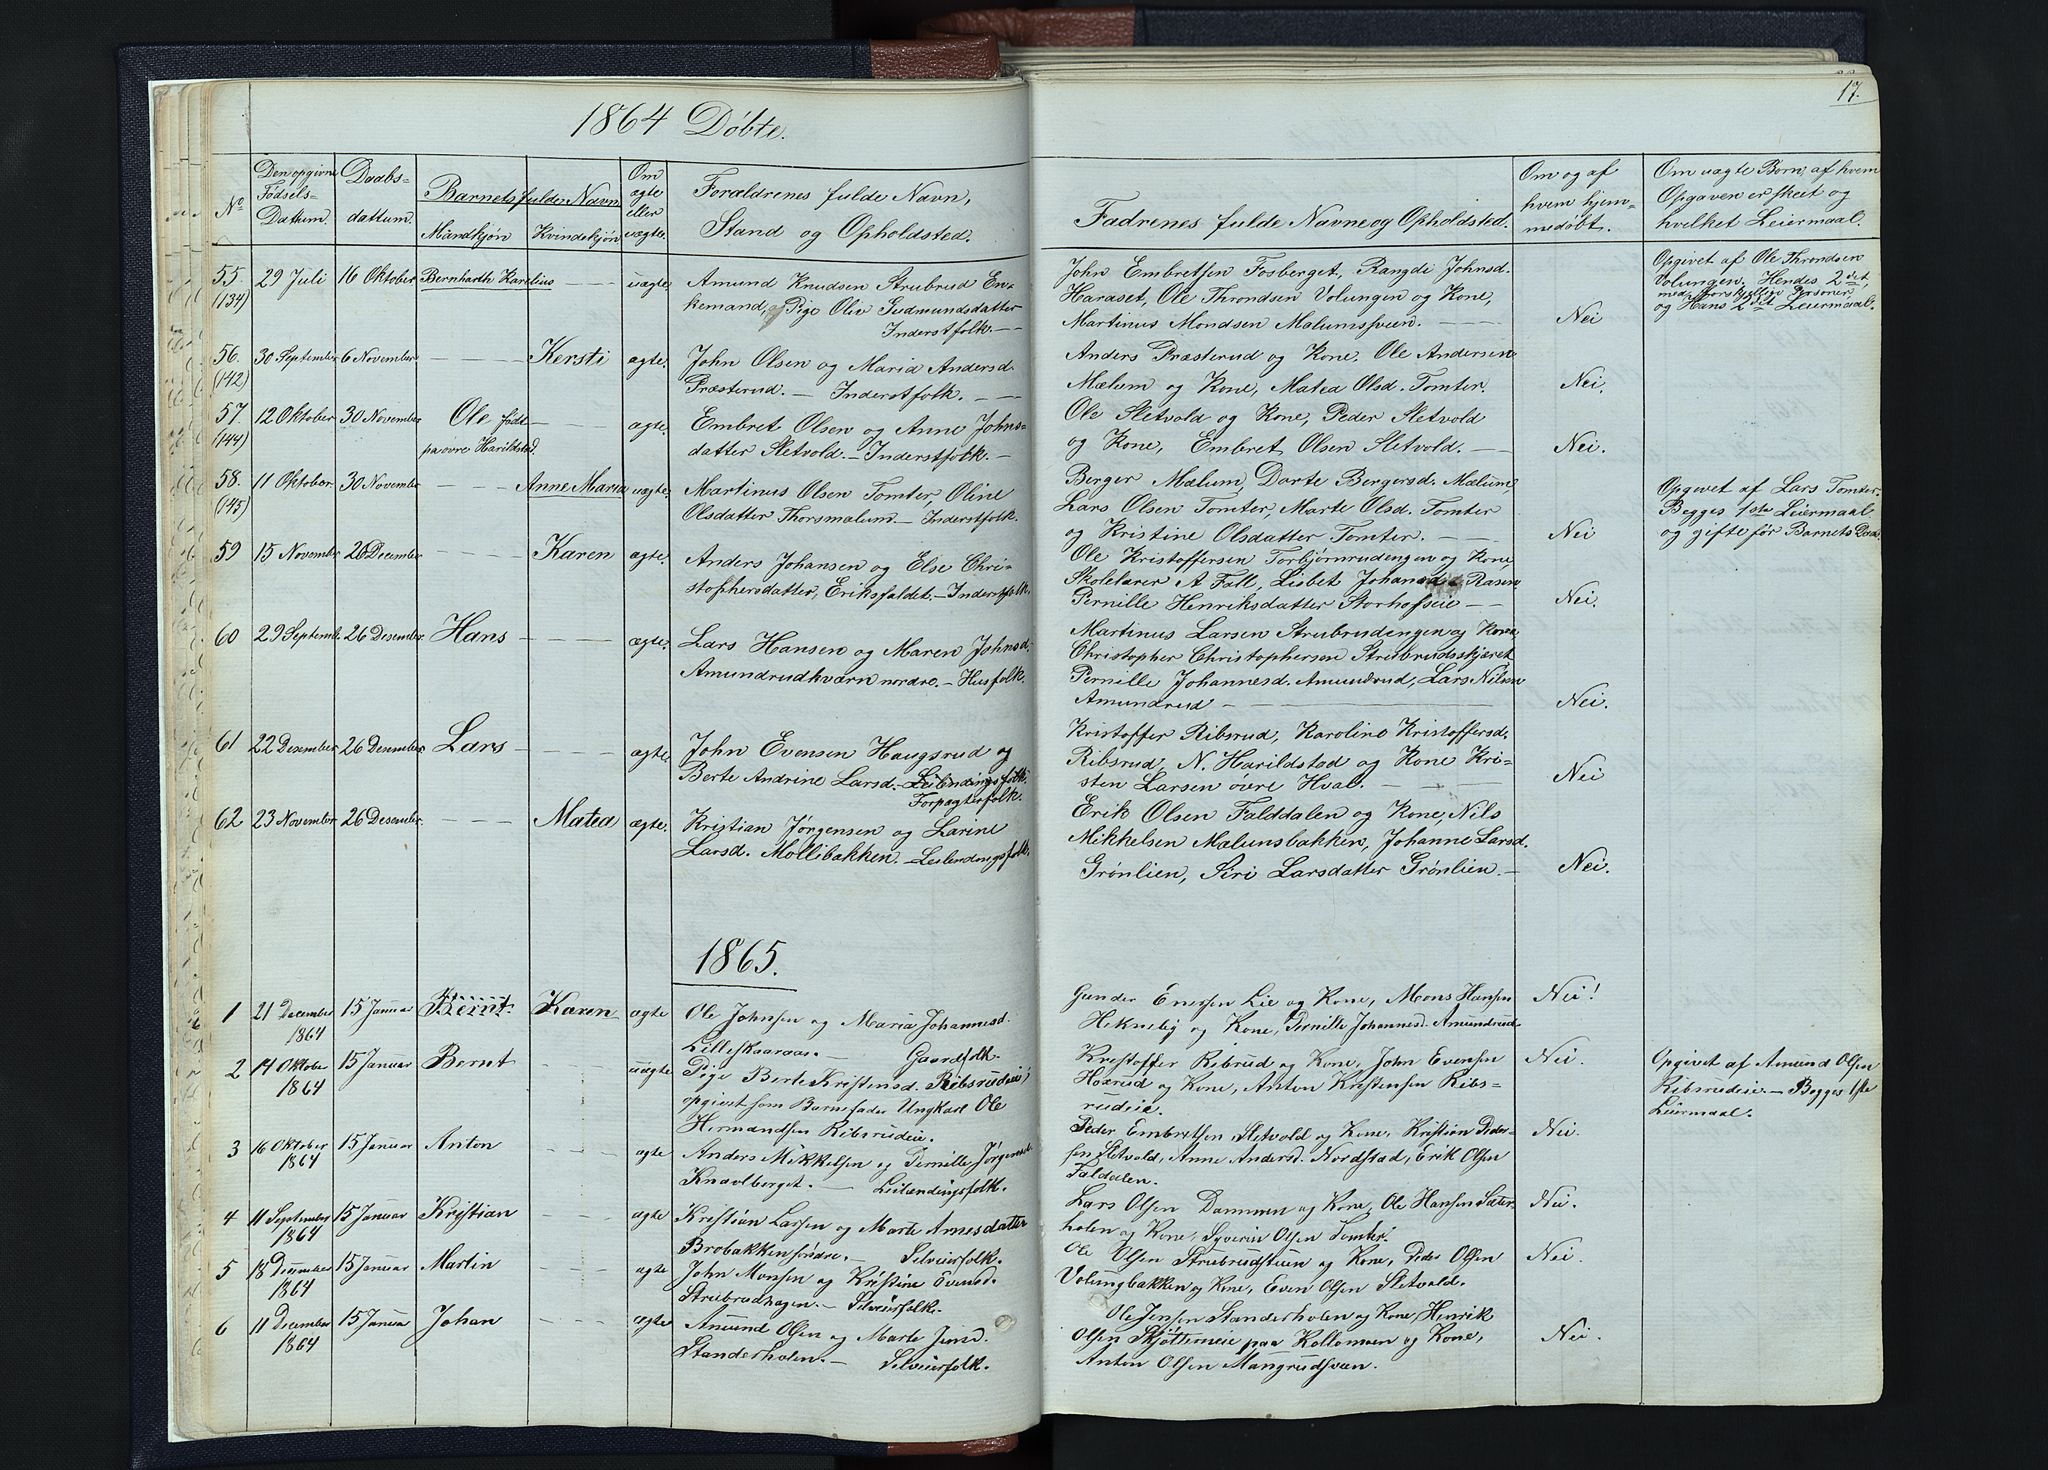 1864 Döbte.
17.
No
Den opgivne Födsels-Dattum.
Daabs-dattum.
Barnets fulde Navn
Mandkjön
Kvindekjön
Om ægte eller uægte.
Forældrenes fulde Navn,
Stand og Opholdsted.
Fadrenes fulde Navne og Opholdsted.
Om og af hvem hjem-medöbt.
Om uægte Börn, af hvem Opgaven er skeet og hvilket Leiermaal.
55. (134) 29 Juli 16 Oktober Bernhardh Karelius uægte
Amund Knudsen Strubrud En-
kemand, Pige Oliv Gudmundsdatter
Inderstfolk.
John Embretsen Fosberget, Rangdi Johnsd.
Haraset, Ole Throndsen Volungen og Kone,
Martinus Mondsen Malumssveen. Nei
Opgivet af Ole Throndsen
Volungen. Hendes 2det,
med forskjellige Personer
og Hans 2det Leiermaal.
56. (142) 30 September 6 November Kersti ægte.
John Olsen og Maria Andersd.
Præsterud. – Inderstfolk.
Anders Præsterud og Kone. Ole Andersen
Mælum og Kone, Matea Olsd. Tomter. Nei.
57. (144) 12 Oktober 30 November Ole födt
paa övre Harildstad. ægte.
Embret Olsen og Anne Johns-
datter Sletvold. – Inderstfolk. –
Ole Sletvold og Kone, Peder Sletvold
og Kone, Embret Olsen Sletvold. Nei.
58. (145) 11 Oktober 30 November Anne Maria uægte
Martinus Olsen Tomter, Oline
Olsdatter Thorsmalund. – Inderstfolk.
Berger Mælum, Dorte Bergersd. Mælum,
Lars Olsen Tomter, Marte Olsd. Tomter
og Kristine Olsdatter Tomter. Nei
Opgivet af Lars Tomter.
Begges 1ste Leiermaal
og gifte før Barnets Daab.
59 15 November 26 December Karen ægte.
Anders Johansen og Else Chri-
stophersdatter, Eriksfaldet. – Inderstfolk.
Ole Kristoffersen Torbjörnrudengen og Kone
Skolelærer A. Fall, Lisbet Johansd. Rasen
Pernille Henriksdatter Storhofseie Nei.
60 29 Septemb. 26 Desember. Hans ægte.
Lars Hansen og Maren Johnsd.
Amundrudkværn nordre. – Husfolk.
Martinus Larsen Strubrudengen og Kone,
Christopher Christophersen Strubrudsskjæret
Pernille Johannesd. Amundrud, Lars Nilsen
Amundrud Nei.
61 22 Desember 26 Desember. Lars ægte
John Evensen Haugsrud og
Berte Andrine Larsd. – Leilendingsfolk.
Forpagterfolk.
Kristoffer Ribsrud, Karoline Kristoffersd.
Ribsrud, N. Harildstad og Kone Kri-
sten Larsen övre Hval. Nei
62 23 November. 26 Desember. Matea ægte.
Kristian Jörgensen og Larine
Larsd. Mollibakken. – Leilendingsfolk.
Erik Olsen Falddalen og Kone, Nils
Mikkelsen Mælumsbakken, Johanne Larsd.
Grönlien, Siri Larsdatter Grönlien. – Nei.
1865.
1 21 December 1864 15 Januar Bernt Karen ægte
Ole Johnsen og Maria Johannesd.
Lilleskaaraas. – Gaardfolk.
Gunder Enersen Lie og Kone, Mons Hansen
Hekneby og Kone, Pernille Johannesd. Amundrud Nei!
2 14 Oktober 1864 15 Januar Bernt uægte
Pige Berte Kristensd. Ribsrudeie,
opgivet som Barnefader Ungkarl Ole
Hermandsen Ribsrudeie.
Kristoffer Ribsrud og Kone, John Evensen
Hoxrud og Kone, Anton Kristensen Ribs-
rudeie. Nei.
Opgivet af Amund Olsen
Ribsrudeie – Begges 1ste
Leiermaal.
3 16 Oktober 1864 15 Januar Anton ægte
Anders Mikkelsen og Pernille Jörgensd.
Knavlberget. – Leilændingsfolk.
Peder Embretsen Sletvold og Kone, Kristian Peder-
sen Sletvold, Anne Andersd. Nordstad, Erik Olsen
Faldalen. Nei.
4 11 September 1864 15 Januar Kristian ægte
Kristian Larsen og Marte Arnesdatter
Brobakken söndre. – Selveierfolk.
Lars Olsen Dammen og Kone, Ole Hansen Sæter-
holen og Kone, Syverin Olsen Tomter. Nei.
5 18 December 1864 15 Januar Martin ægte
John Monsen og Kristine Evensd.
Strubrudhagen. – Selveierfolk.
Ole Olsen Strubrudstuen og Kone, Peder Olsen
Volungbakken og Kone, Even Olsen Sletvold. Nei.
6 11 December 1864 15 Januar Johan ægte
Amund Olsen og Marte Jensd.
Standerholen. – Selveierfolk.
Ole Jensen Standerholen og Kone, Henrik
Olsen Skjöttemeie paa Kollomoen og Kone,
Anton Olsen Mangrudsveen. Nei.